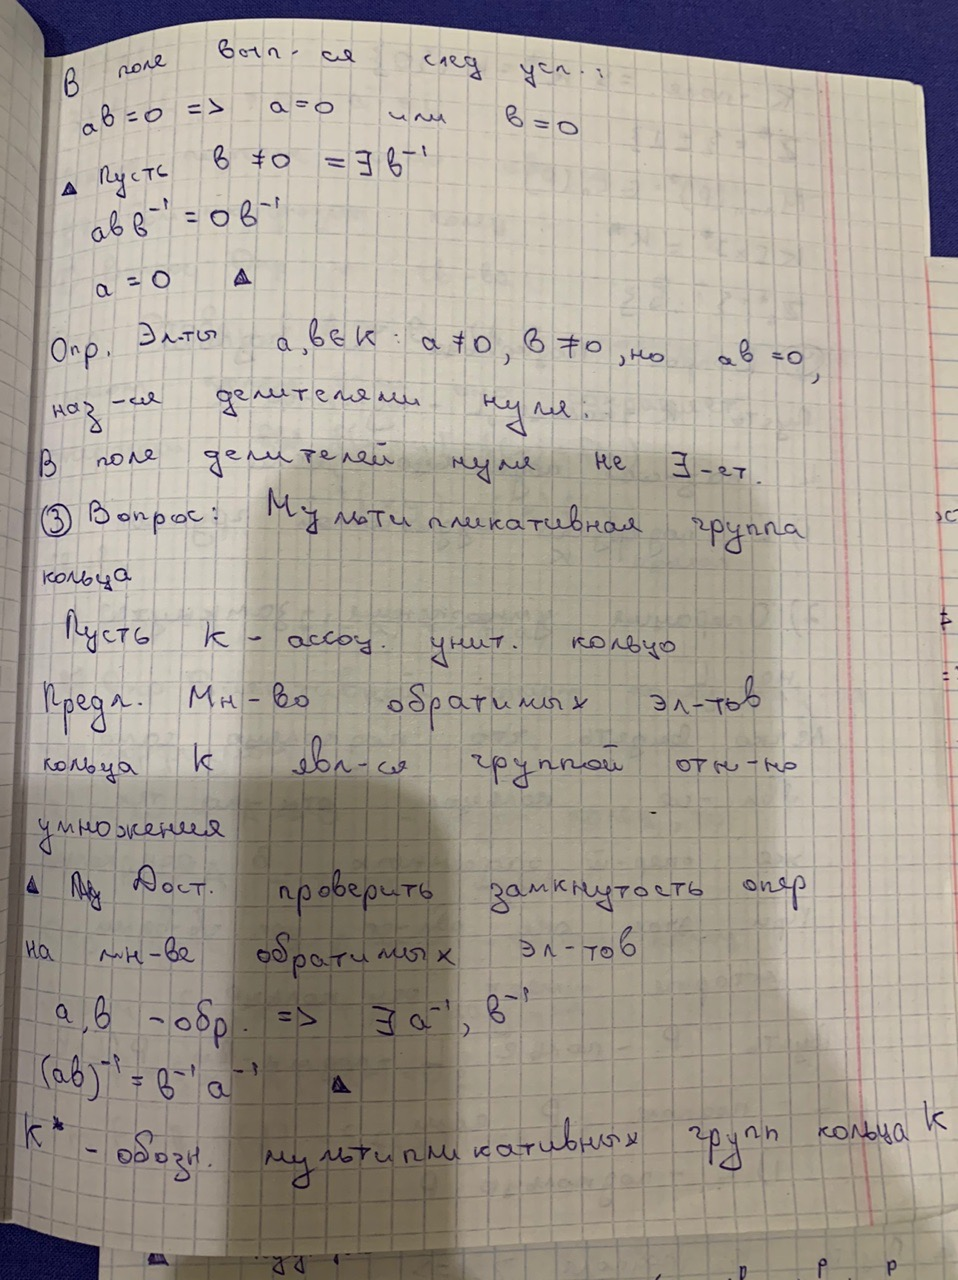 В поле вып-ся след усл.:
ав=0 => а=0 или в=0
Δ Пусть в ≠0 =∃ в⁻¹
авв⁻¹ = 0в⁻¹
а = 0 Δ
Опр. Эл-ты а,в∈К : а≠0, в≠0, но ав=0,
наз-ся делителями нуля.
В поле делителей нуля не ∃-ет.
③ Вопрос: Мультипликативная группа
кольца
Пусть К - ассоц. унит. кольцо
Предл. Мн-во обратимых эл-тов
кольца К явл-ся группой отн-но
умножения
Δ Дост. проверить замкнутость опер
на мн-ве обратимых эл-тов
а,в -обр. => ∃ а⁻¹, в⁻¹
(ав)⁻¹ = в⁻¹ а⁻¹ Δ
К* - обозн. мультипликативных групп кольца К